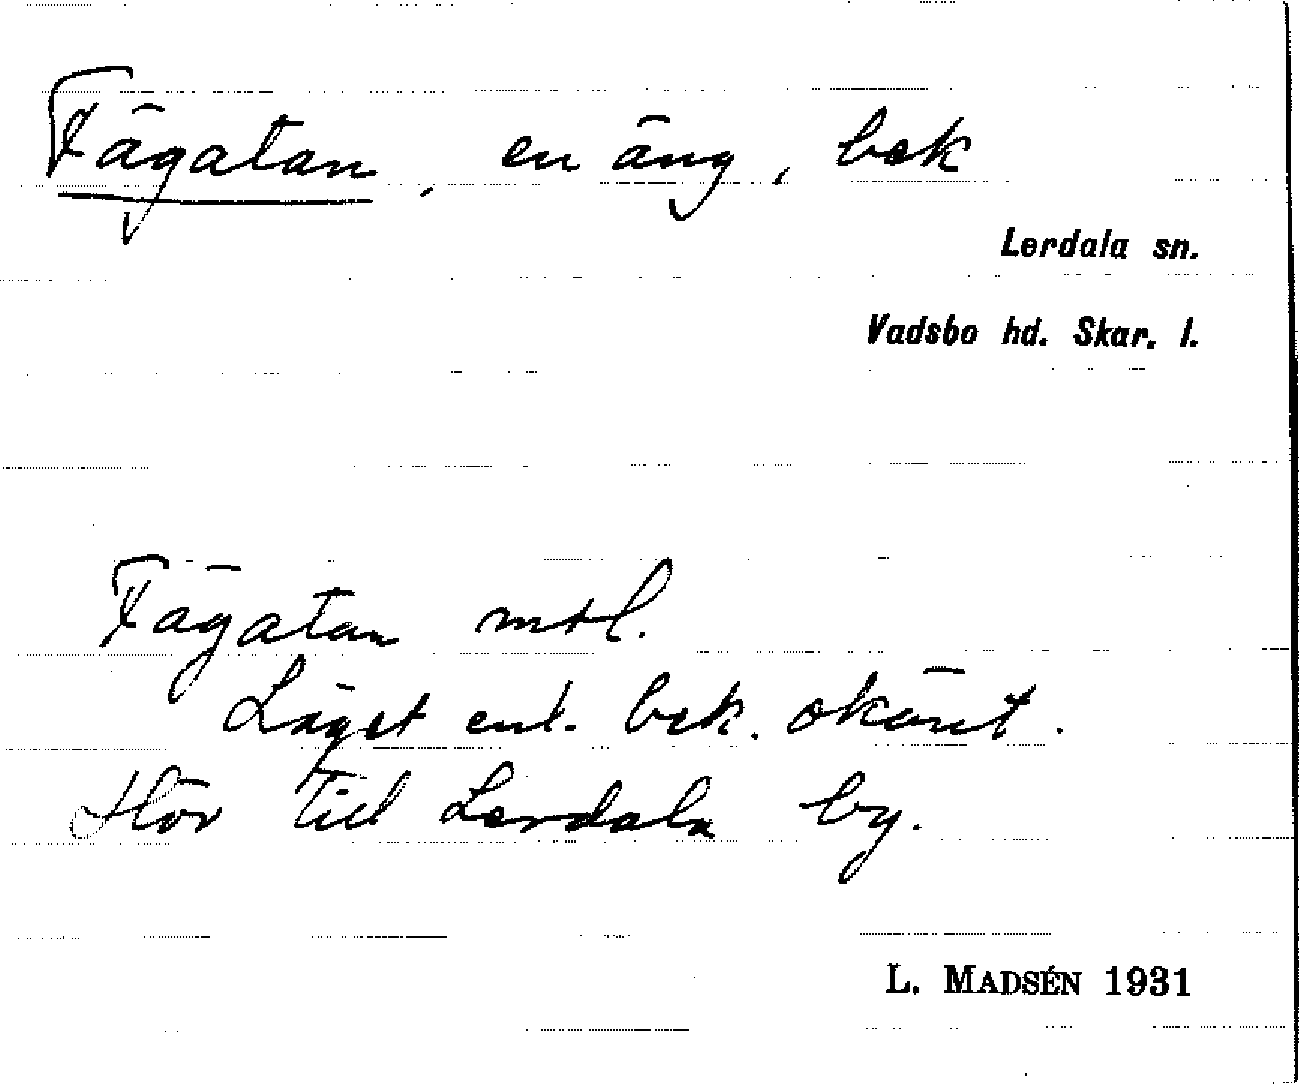 Fägatan, en äng, bek
Lerdala sn.
Vadsbo hd. Skar. l.
Fägatan mtl.
Läget enl. bek. okänt.
Hör till Lerdala by.
L. MADSÉN 1931